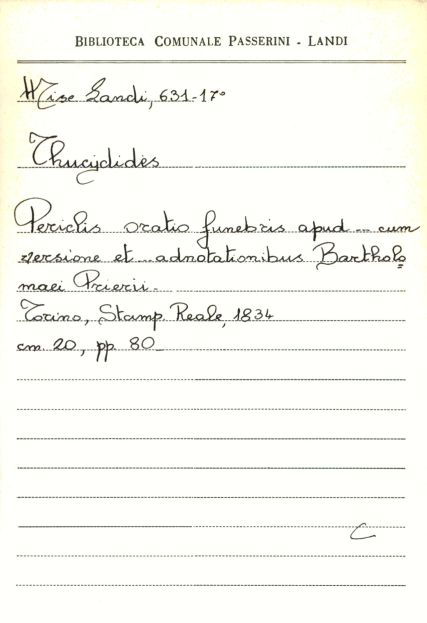 BIBLIOTECA COMUNALE PASSERINI - LANDI
Misc Landi, 631-17°
Thucydides
Periclis oratio funebris apud ... cum
versione et ... adnotationibus Bartholo
maei Prierii.-
Torino, Stamp. Reale, 1834
cm. 20, pp. 80
C